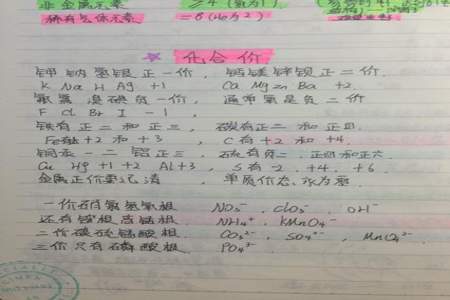 非金属元素 ≥4（氢为1）
稀有气体元素 =8（He为2）
化合价
钾钠氢银正一价，钙镁锌钡正二价.
K Na H Ag +1 Ca Mg zn Ba +2
氟氯溴碘负一价，通常氧是负二价
F Cl Br I -1,
铁有正二和正三，碳有正二和正四.
Fe +2 和 +3, C 有 +2 和 +4
铜汞一二铝正三，硫有负二、正四和正六
Cu Hg +1 +2 Al +3, S 有 -2 +4, +6.
金属正价要记清，单质价态永为零.
一价硝氯氢氧根 NO₃⁻、ClO₃⁻、OH⁻
还有铵根高锰根 NH₄⁺、KMnO₄⁻
二价碳硫锰酸根 CO₃²⁻、SO₄²⁻，MnO₄²⁻
三价只有磷酸根 PO₄³⁻